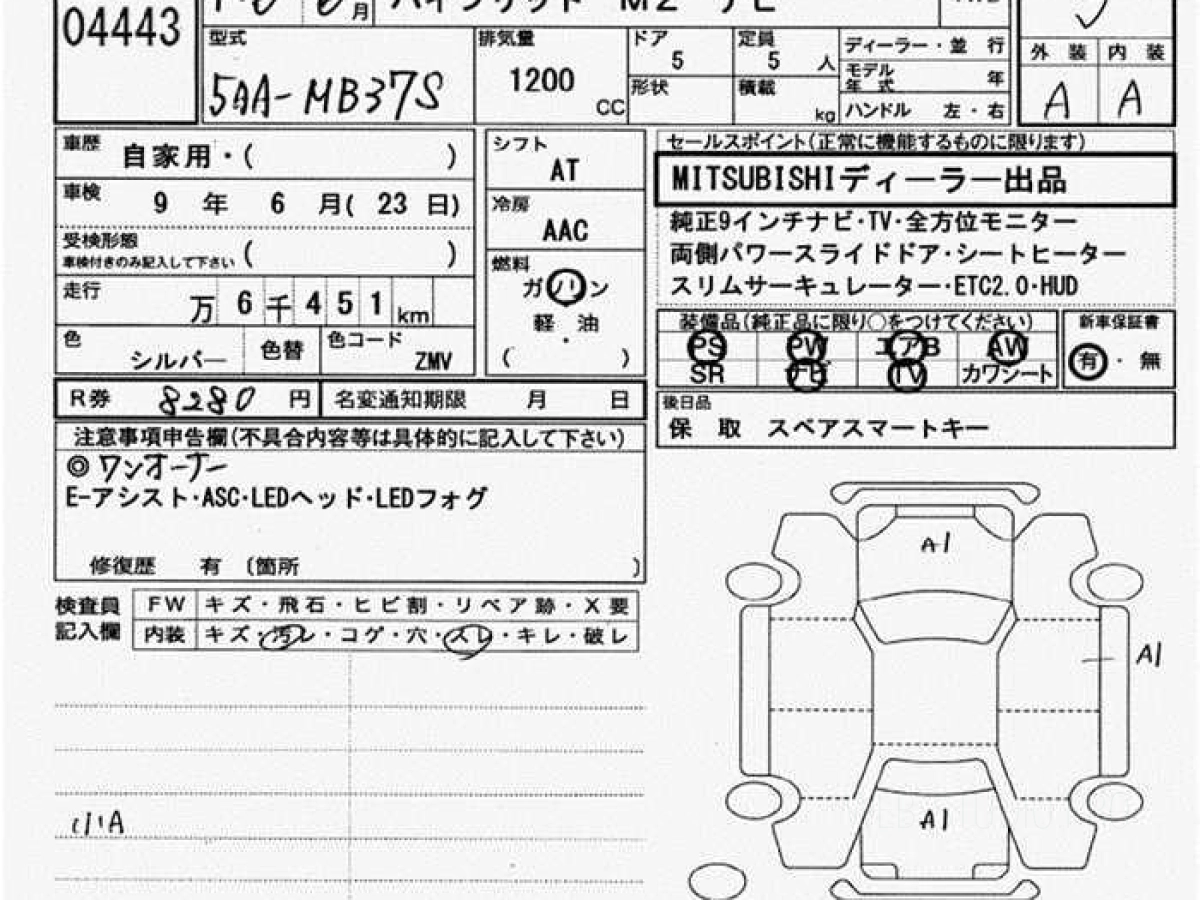 04443
月 ハイブリッド M2 ナビ
型式 5AA-MB37S
排気量 1200 CC
ドア 5
形状
定員 5 人
積載 kg
ディーラー・並 行
モデル年式 年
ハンドル 左・右
外装 内装
A A
車歴 自家用・( )
車検 9 年 6 月( 23 日)
受検形態 ( )
車検付きのみ記入して下さい
走行 万 6 千 4 5 1 km
色 シルバー 色替 色コード ZMV
シフト AT
冷房 AAC
燃料 ガソリン
軽 油
( )
セールスポイント(正常に機能するものに限ります)
MITSUBISHIディーラー出品
純正9インチナビ・TV・全方位モニター
両側パワースライドドア・シートヒーター
スリムサーキュレーター・ETC2.0・HUD
装備品(純正品に限り○をつけてください)
PS PW エアB AW
SR ナビ TV カワシート
新車保証書
有・無
R券 8280 円 名変通知期限 月 日
後日品
保 取 スペアスマートキー
注意事項申告欄(不具合内容等は具体的に記入して下さい)
◎ ワンオーナー
E-アシスト・ASC・LEDヘッド・LEDフォグ
修復歴 有 (箇所 )
検査員記入欄
FW キズ・飛石・ヒビ割・リペア跡・X要
内装 キズ・汚レ・コゲ・穴・スレ・キレ・破レ
A1
A1
A1
小A